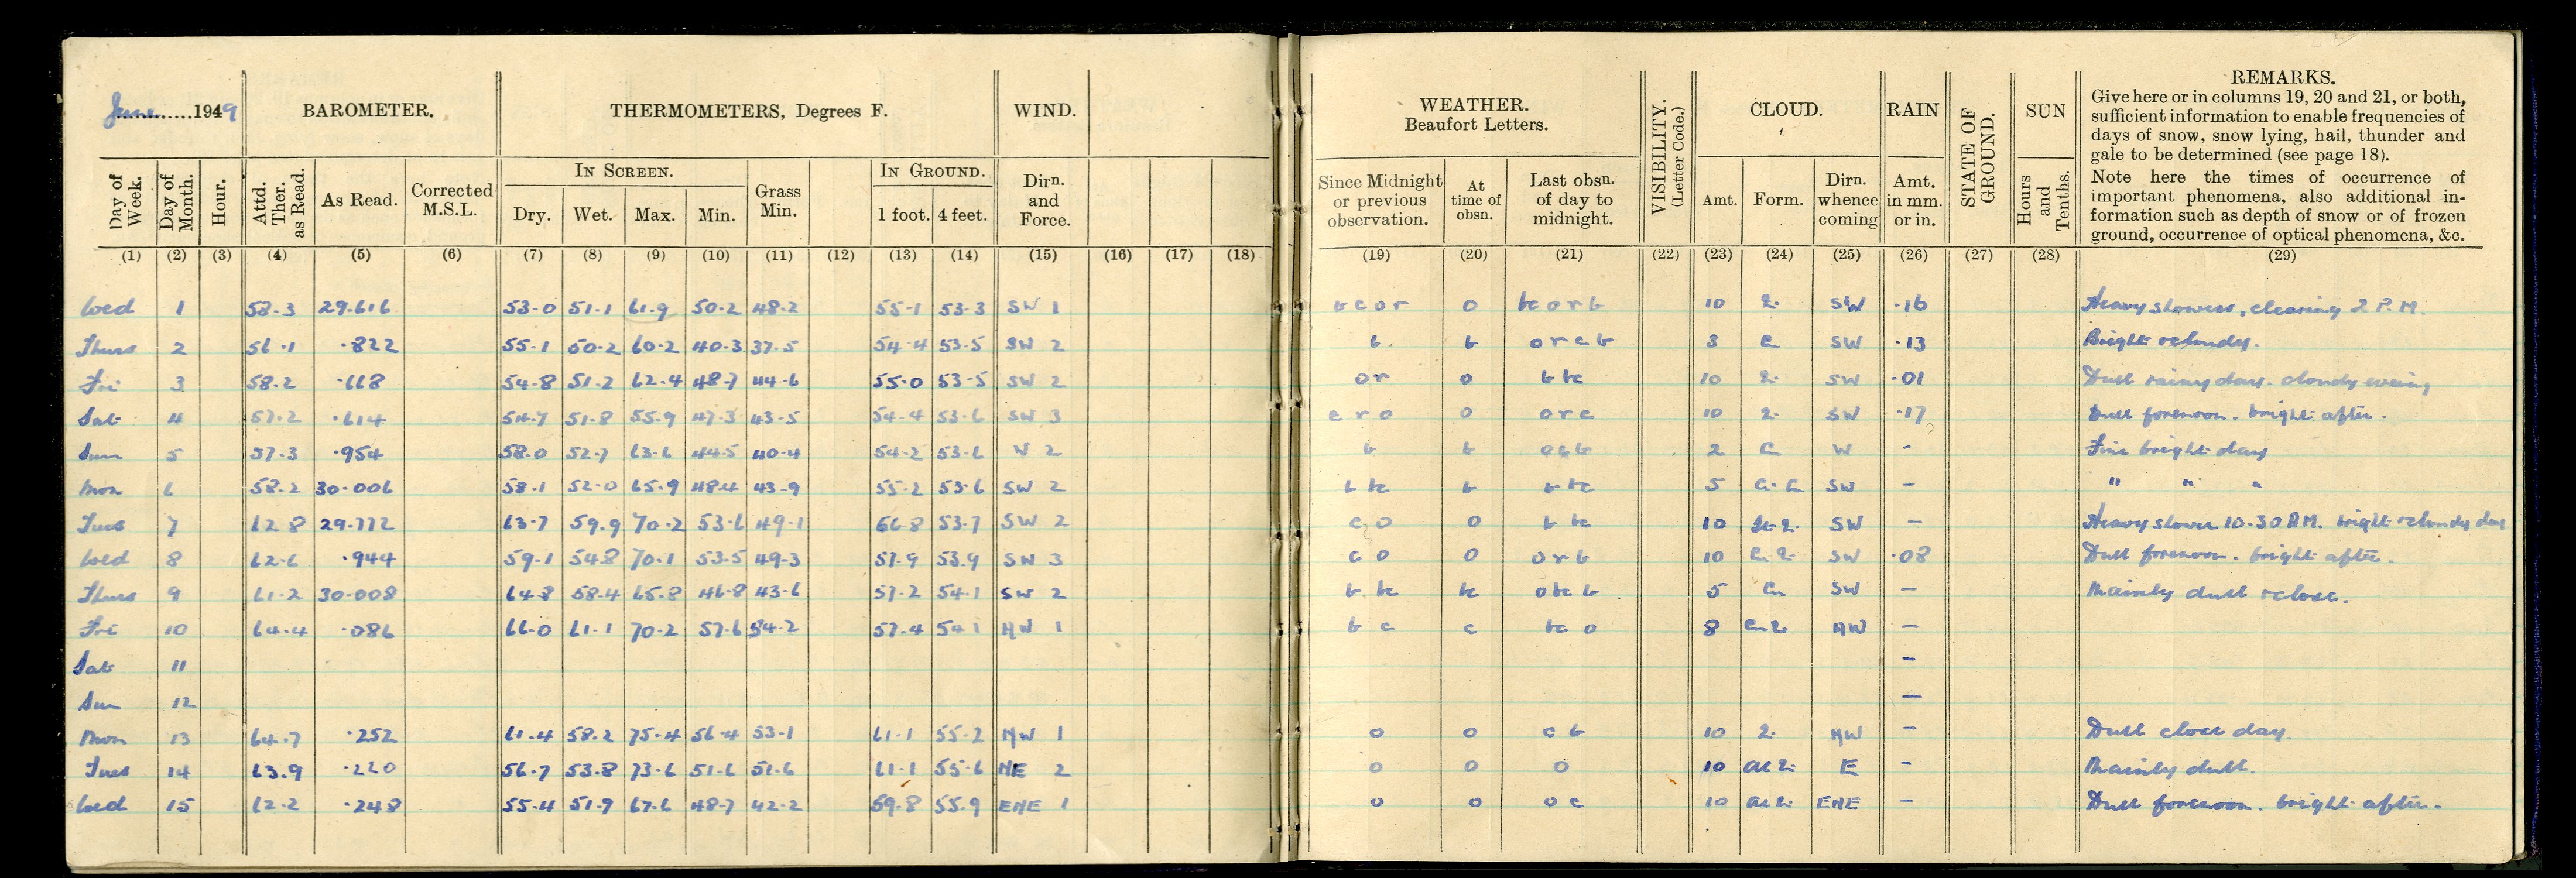 June 1949 BAROMETER. THERMOMETERS, Degrees F. WIND.
Day of Week. Day of Month. Hour. Attd. Ther. as Read. As Read. Corrected M.S.L. IN SCREEN. Dry. Wet. Max. Min. Grass Min. IN GROUND. 1 foot. 4 feet. Dirn. and Force.
(1) (2) (3) (4) (5) (6) (7) (8) (9) (10) (11) (12) (13) (14) (15) (16) (17) (18)
Wed 1 58.3 29.616 53.0 51.1 61.9 50.2 48.2 55.1 53.3 SW 1
Thurs 2 56.1 .822 55.1 50.2 60.2 40.3 37.5 54.4 53.5 SW 2
Fri 3 58.2 .668 54.8 51.2 62.4 48.7 44.6 55.0 53.5 SW 2
Sat 4 57.2 .614 54.7 51.8 55.9 47.3 43.5 54.4 53.6 SW 3
Sun 5 57.3 .954 58.0 52.7 63.6 44.5 40.4 54.2 53.6 W 2
Mon 6 58.2 30.006 58.1 52.0 65.9 48.4 43.9 55.2 53.6 SW 2
Tues 7 62.8 29.772 63.7 59.9 70.2 53.6 49.1 56.8 53.7 SW 2
Wed 8 62.6 .944 59.1 54.8 70.1 53.5 49.3 57.9 53.9 SW 3
Thurs 9 61.2 30.008 64.8 58.4 65.8 46.8 43.6 57.2 54.1 SW 2
Fri 10 64.4 .086 66.0 61.1 70.2 57.6 54.2 57.4 54.1 NW 1
Sat 11
Sun 12
Mon 13 64.7 .252 61.4 58.2 75.4 56.4 53.1 61.1 55.2 NW 1
Tues 14 63.9 .220 56.7 53.8 73.6 51.6 51.6 61.1 55.6 NE 2
Wed 15 62.2 .248 55.4 51.9 67.6 48.7 42.2 59.8 55.9 ENE 1
WEATHER. Beaufort Letters. VISIBILITY. (Letter Code.) CLOUD. RAIN STATE OF GROUND. SUN REMARKS.
Since Midnight or previous observation. At time of obsn. Last obsn. of day to midnight. Amt. Form. Dirn. whence coming Amt. in mm. or in. Hours and Tenths.
Give here or in columns 19, 20 and 21, or both,
sufficient information to enable frequencies of
days of snow, snow lying, hail, thunder and
gale to be determined (see page 18).
Note here the times of occurrence of
important phenomena, also additional in-
formation such as depth of snow or of frozen
ground, occurrence of optical phenomena, &c.
(19) (20) (21) (22) (23) (24) (25) (26) (27) (28) (29)
b c o r o bc o r b 10 SW .16 Heavy showers, clearing 2 P.M.
b b o r c b 3 SW .13 Bright & cloudy.
o r o b bc 10 SW .01 Dull rainy day. cloudy evening
c r o o o r c 10 SW .17 Dull forenoon. bright after.
b b 2 W - Fine bright day
b bc b b bc 5 SW - " " "
c o o b bc 10 SW - Heavy shower 10.30 AM. bright & cloudy day
c o o o r b 10 SW .08 Dull forenoon. bright after.
b bc bc o bc b 5 SW - Mainly dull & close.
b c c bc o 8 NW -
-
-
o o c b 10 NW - Dull close day.
o o o 10 E - Mainly dull.
o o o c 10 ENE - Dull forenoon. bright after.